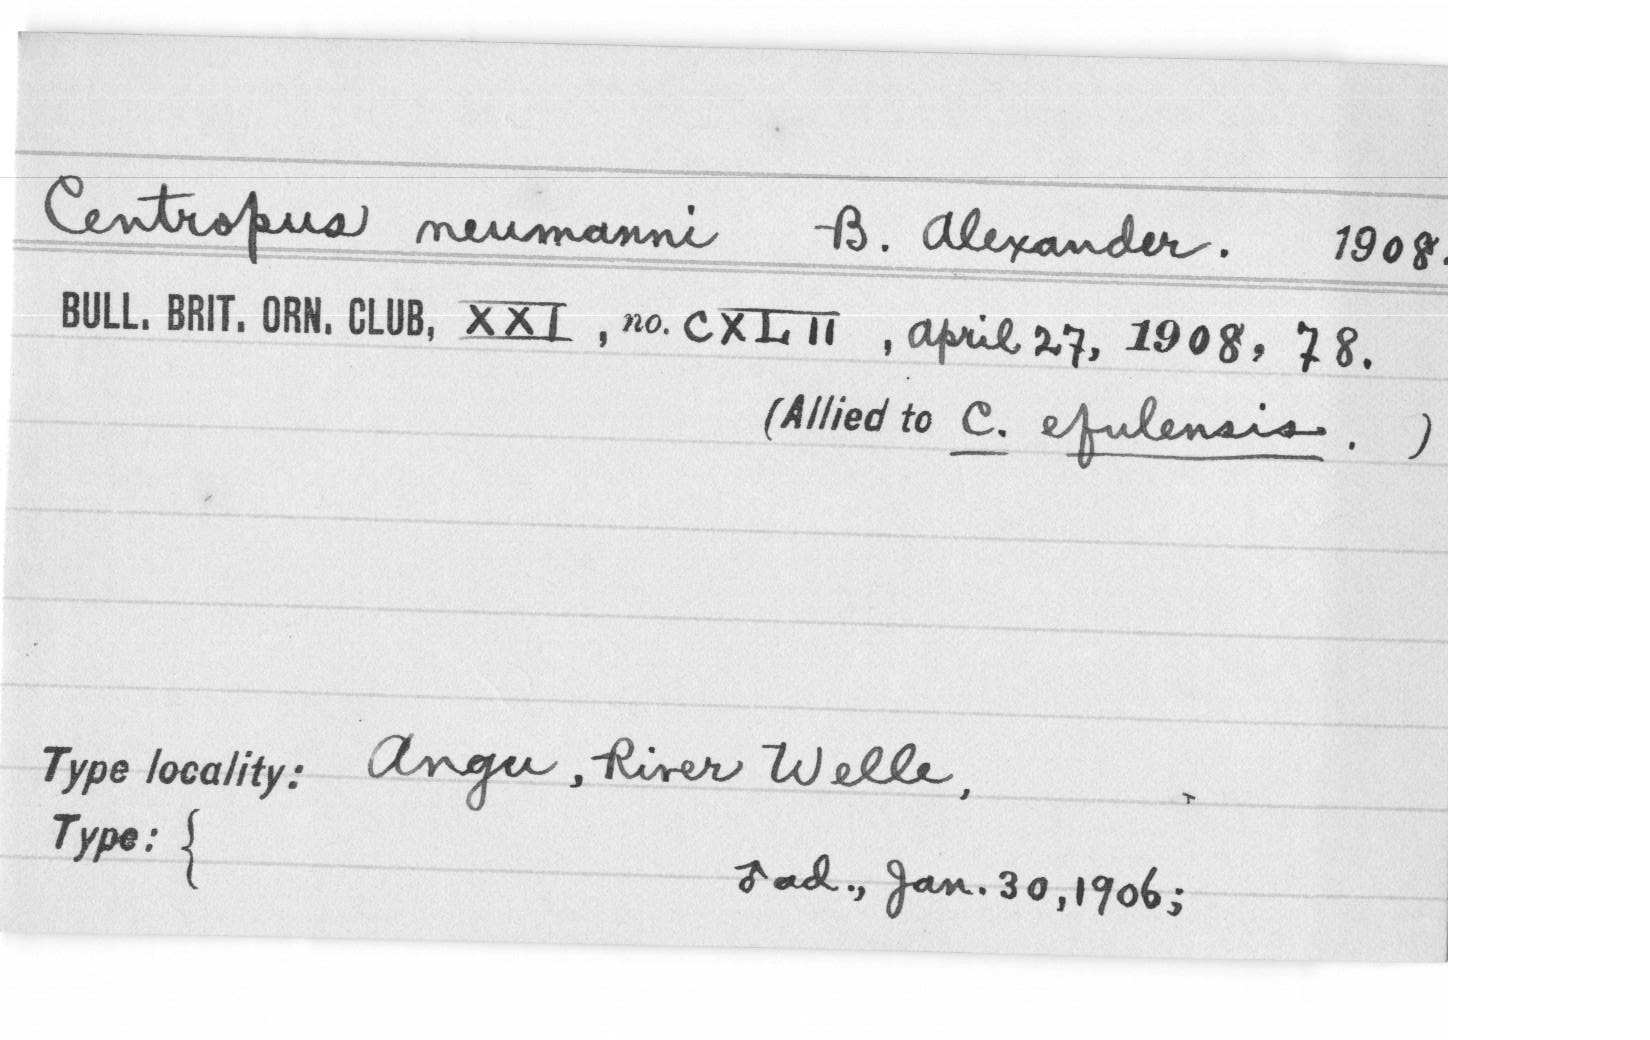 Centropus neumanni B. Alexander. 1908.
BULL. BRIT. ORN. CLUB, XXI, no. CXLII, April 27, 1908, 78.
(Allied to C. efulensis. )
Type locality: Angu, River Welle,
Type: {
♂ ad., Jan. 30, 1906;